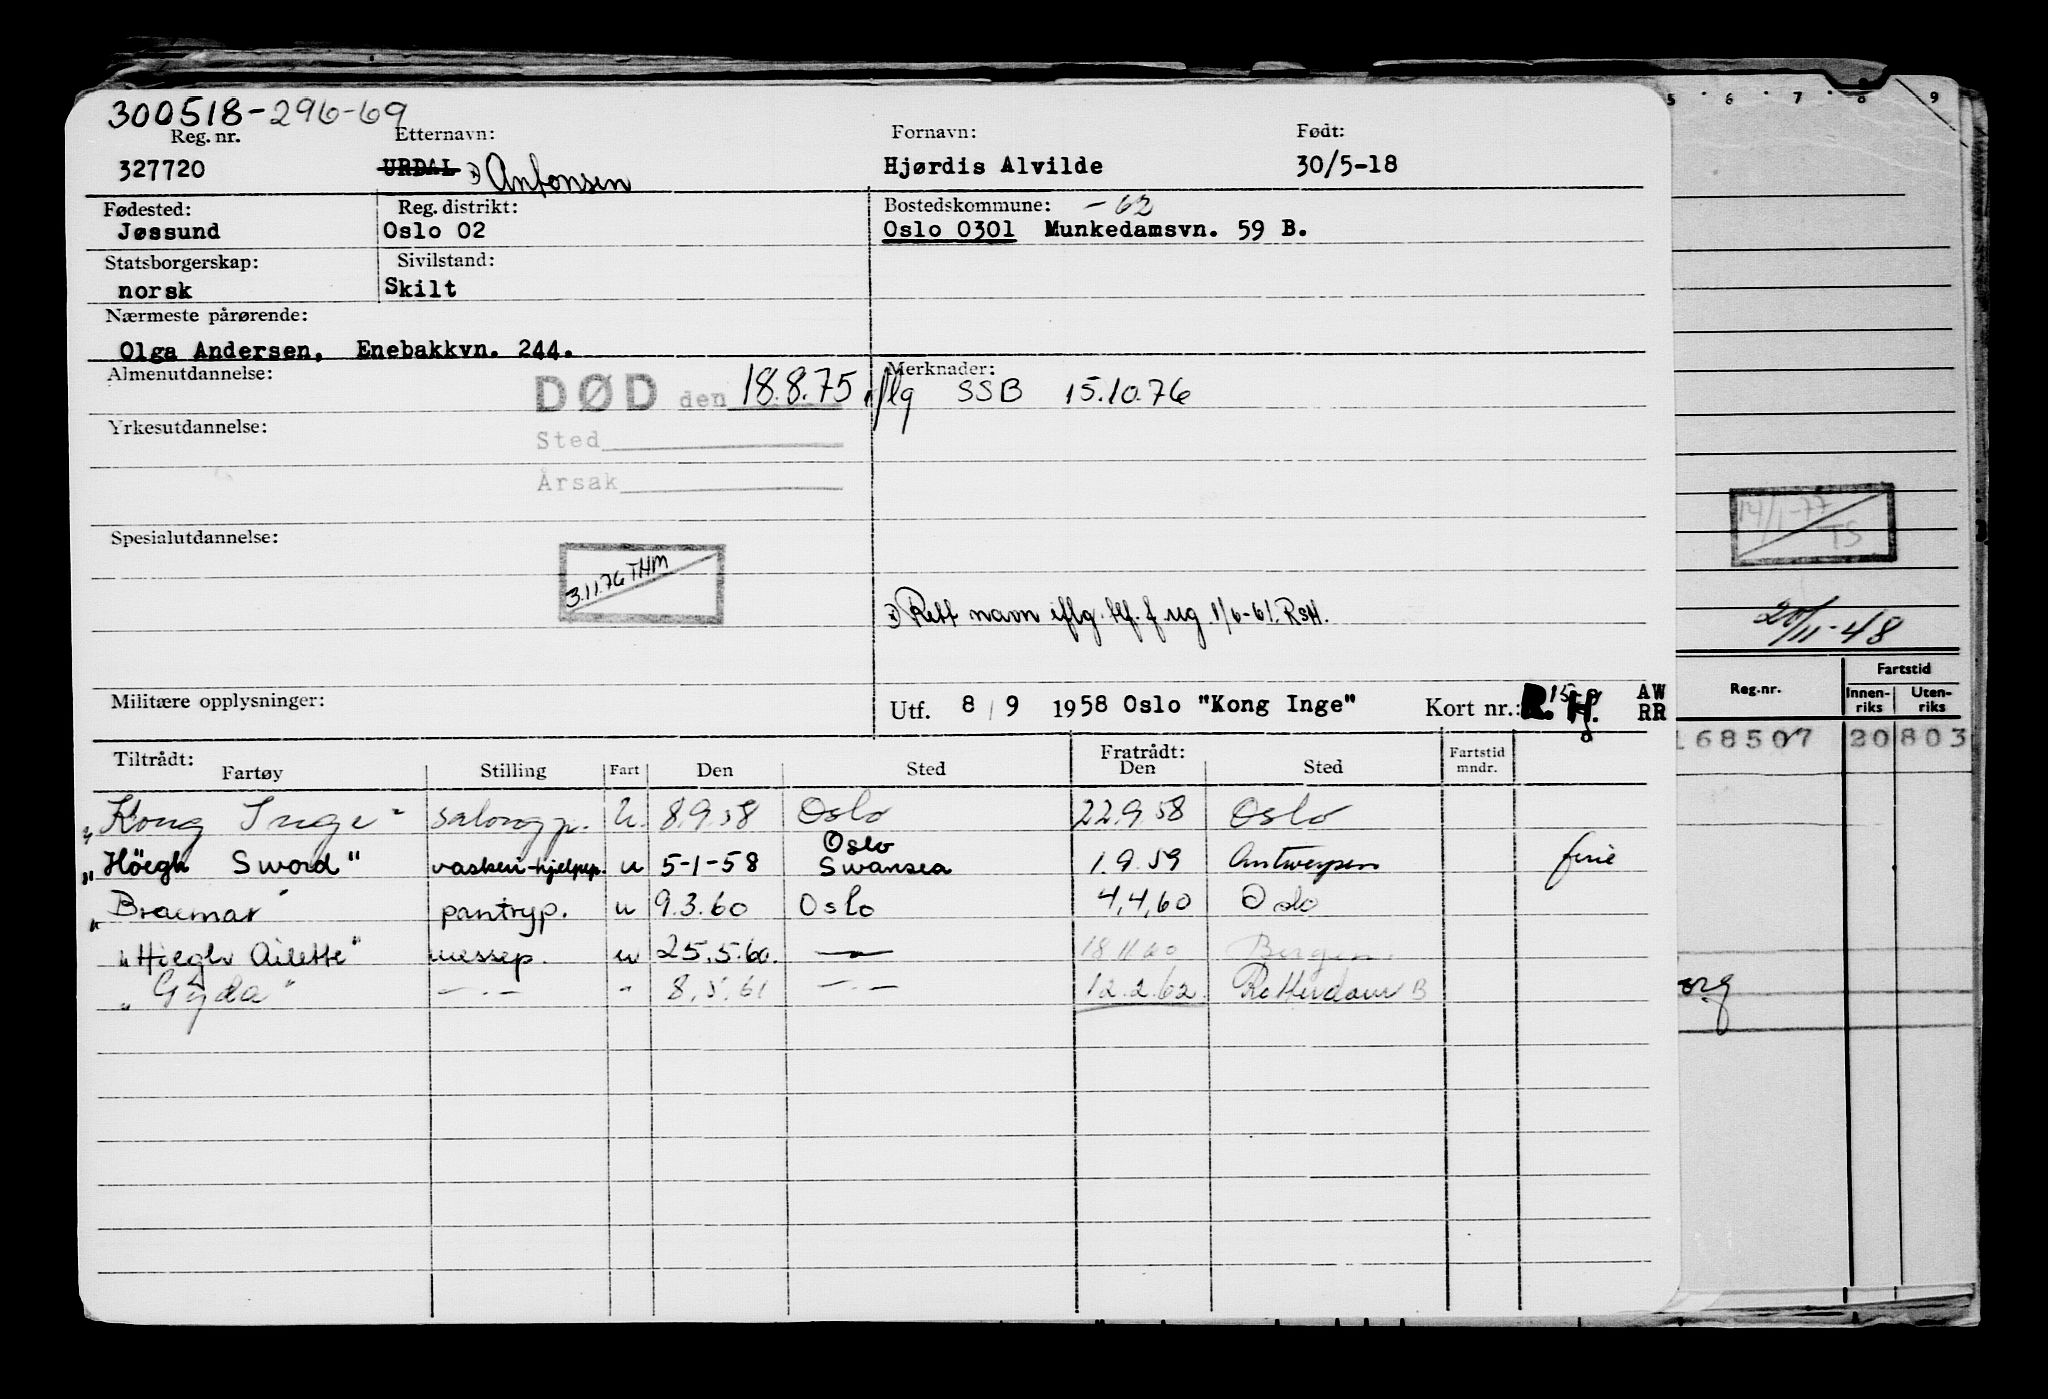 300518-296-69
Reg. nr. Etternavn: Fornavn: Født:
327720 URDAL x) Antonsen Hjørdis Alvilde 30/5-18
Fødested: Reg. distrikt: Bostedskommune: -62
Jøssund Oslo 02 Oslo 0301 Munkedamsvn. 59 B.
Statsborgerskap: Sivilstand:
norsk Skilt
Nærmeste pårørende:
Olga Andersen, Enebakkvn. 244.
Almenutdannelse: Merknader:
DØD den 18.8.75 iflg SSB 15.10.76
Yrkesutdannelse:
Sted
Årsak
Spesialutdannelse:
3.11.76 THM
x) Rett navn iflg. tlf. f. rug 1/6-61. RSH.
Militære opplysninger:
Utf. 8/9 1958 Oslo "Kong Inge" Kort nr.: R. H. AW
RR
Tiltrådt: Fratrådt:
Fartøy Stilling Fart Den Sted Den Sted Fartstid mndr.
"Kong Inge" salongp. u. 8.9.58 Oslo 22.9.58 Oslo
"Höegh Sword" vaskeri-hjelpep. u 5-1-58 Oslo Swansea 1.9.59 Antwerpen ferie
"Braemar" pantryp. u 9.3.60 Oslo 4,4,60 Oslo
"Höegh Ailette" messep. u 25.5.60. — 18.11.60 Bergen.
"Gyda" —.— " 8.5.61 —.— 12.2.62. Rotterdam B
5 6 7 8 9
14/1-77
TS
20/11-48
Reg.nr. Fartstid
Innen-riks Uten-riks
168507 20 803
org